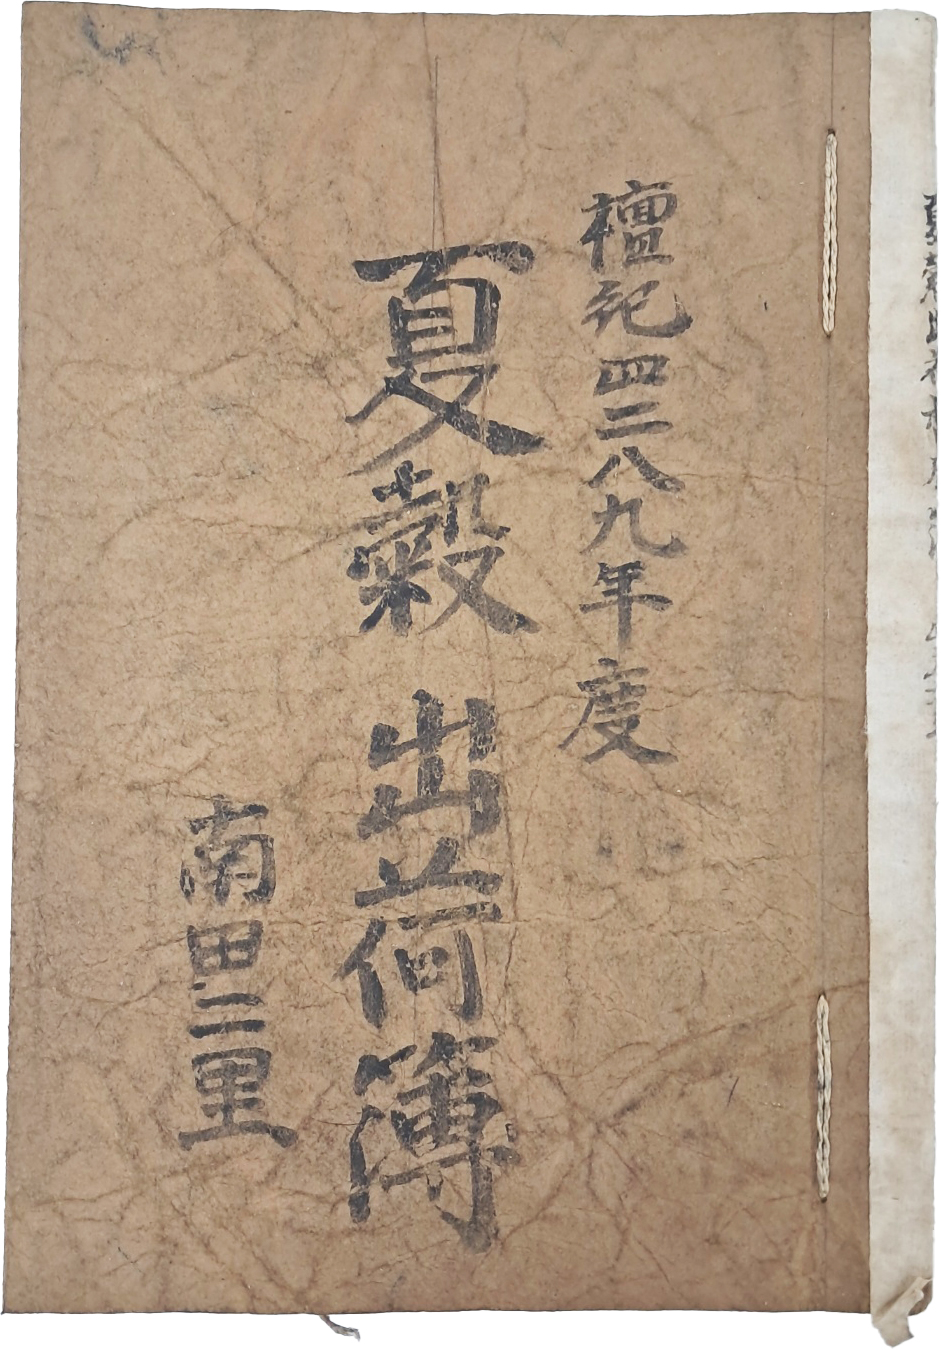 檀紀四二八九年度
夏穀 出荷簿
南田二里